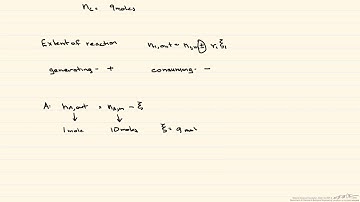 n_c = 9 moles
Extent of reaction n_i,out = n_i,in ± ν_i ξ_i
generating - + consuming - -
A: n_A,out = n_A,in - ξ_1
↓ ↓
1 mole 10 moles ξ = 9 mol